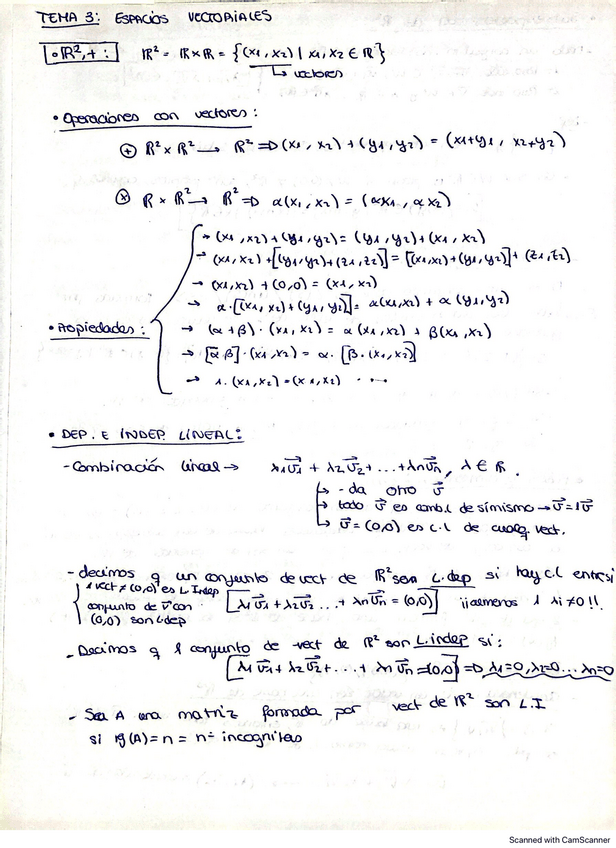 TEMA 3: ESPACIOS VECTORIALES
• ℝ²,+ : ℝ² = ℝ×ℝ = {(x1, x2) | x1, x2 ∈ ℝ}
↳ vectores
• Operaciones con vectores:
⊕ ℝ² × ℝ² → ℝ² ⇒ (x1, x2) + (y1, y2) = (x1+y1, x2+y2)
⊗ ℝ × ℝ² → ℝ² ⇒ α(x1, x2) = (αx1, αx2)
• Propiedades:
→ (x1, x2) + (y1, y2) = (y1, y2) + (x1, x2)
→ (x1, x2) + [(y1, y2) + (z1, z2)] = [(x1, x2) + (y1, y2)] + (z1, z2)
→ (x1, x2) + (0,0) = (x1, x2)
→ α·[(x1, x2) + (y1, y2)] = α(x1, x2) + α(y1, y2)
→ (α+β)·(x1, x2) = α(x1, x2) + β(x1, x2)
→ [α·β]·(x1, x2) = α·[β·(x1, x2)]
→ 1·(x1, x2) = (x1, x2) ...
• DEP. E INDEP. LINEAL:
- Combinación lineal → λ1v⃗1 + λ2v⃗2 + ... + λnv⃗n, λ ∈ ℝ.
↳ - da otro v⃗
↳ todo v⃗ es comb.l de símismo → v⃗ = 1v⃗
↳ v⃗ = (0,0) es c.l de cualq. vect.
- decimos q un conjunto de vect de ℝ² son L.dep si hay c.l entresi
1 vect ≠ (0,0) es L.Indep
conjunto de v⃗ con
(0,0) son L.dep
λ1v⃗1 + λ2v⃗2 ... + λnv⃗n = (0,0) ¡¡almenos 1 λi ≠ 0!!.
- Decimos q 1 conjunto de vect de ℝ² son L.indep si:
λ1v⃗1 + λ2v⃗2 + ... + λnv⃗n = (0,0) ⇒ λ1=0, λ2=0... λn=0
- Sea A una matriz formada por vect de ℝ² son L.I
si rg(A) = n = nº incognitas
Scanned with CamScanner